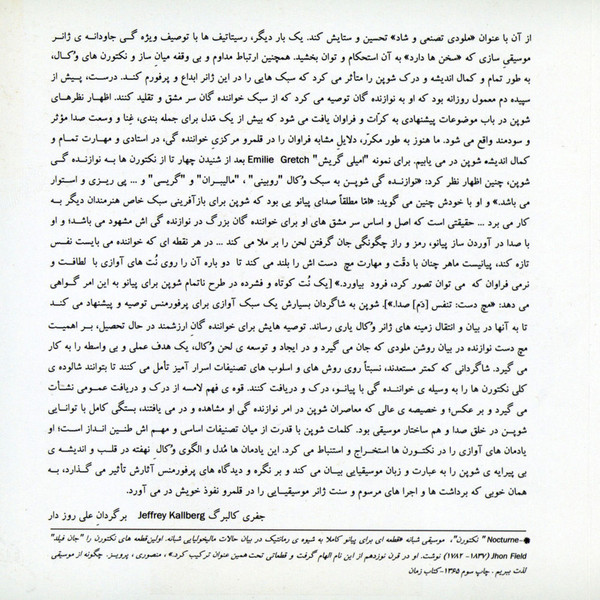 از آن با عنوان «ملودی تصنعی و شاد» تحسین و ستایش کند. یک بار دیگر، رسیتاتیف ها با توصیف ویژه گـی جاودانـه ی ژانـر
موسیقیِ سازی که «سخن ها دارد» به آن استحکام و توان بخشید. همچنین ارتباط مداوم و بی وقفه میانِ ساز و نکتورن های وُکـال،
به طور تمام و کمال اندیشه و درک شوپن را متأثر می کرد که سبک هایی را در این ژانر ابداع و پرفورم کنـد. درسـت، پیـش از
سپیده دم معمول روزانه بود که او به نوازنده گان توصیه می کرد که از سبک خواننده گان سر مشق و تقلید کنند. اظهـار نظرهـای
شوپن در باب موضوعات پیشنهادی به کرّات و فراوان یافت می شود که بیش از یک مدل برای جمله بندی، غِنا و وسعت صدا مؤثر
و سودمند واقع می شود. ما هنوز به طور مکرّر، دلایلِ مشابه فراوان را در قلمرو مرکزی خواننده گی، در استادی و مهـارت تمـام و
کمال اندیشه شوپن در می یابیم. برای نمونه "امیلی گریش" Emilie Gretch بعد از شنیدن چهار تا از نکتورن ها بـه نوازنـده گـی
شوپن، چنین اظهار نظر کرد: «نوازنـده گی شوپـن به سبک وُکال "روبینی" ، "مالیبـران" و "گریسی" و ... پی ریـزی و استـوار
می باشد.» و او با خودش چنین می گوید: «امّا مطلقاً صدای پیانو یی بود که شوپن برای بازآفرینی سبک خاص هنرمندان دیگر بـه
کار می برد ... حقیقتی است که اصل و اساس سر مشق های او برای خواننده گان بزرگ در نوازنده گی اش مشهود می باشد؛ و او
با صدا در آوردن ساز پیانو، رمز و راز چگونگی جان گرفتن لحن را بر ملا می کند ... در هر نقطه ای که خواننده می بایست نفس
تازه کند، پیانیست ماهر چنان با دقّت و مهارت مچ دست اش را بلند می کند تا دو باره آن را روی نُت های آوازی با لطافـت و
نرمی فراوان که می توان تصور کرد، فرود بیاورد.» [یک نُت کوتاه و فشرده در طرح ناتمام شوپن برای پیانو به این امر گـواهی
می دهد: «مچ دست: تنفس [دَم] صدا.»]. شوپن به شاگردان بسیارش یک سبک آوازی برای پرفورمنس توصیه و پیشنهاد می کند
تا به آنها در بیان و انتقال زمینه های ژانر وُکال یاری رساند. توصیه هایش برای خواننده گانِ ارزشمند در حال تحصیل، بـر اهمیـت
مچ دست نوازنده در بیان روشن ملودی که جان می گیرد و در ایجاد و توسعه ی لحن وُکال، یک هدف عملی و بی واسطه را به کار
می گیرد. شاگردانی که کمتر مستعدند، نسبتاً روی روش های و اسلوب های تصنیفات اسرار آمیز تأمل می کنند تا بتوانند شالوده ی
کلی نکتورن ها را به وسیله ی خواننـده گـی با پیانـو، درک و دریافت کنند. قوه ی فهم لامسه از درک و دریافت عمومی نشـأت
می گیرد و بر عکس؛ و خصیصه ی عالی که معاصران شوپن در امر نوازنده گی او مشاهده و در می یافتند، بستگی کامل با توانایی
شوپـن در خلق صدا و هم ساختار موسیقی بود. کلمات شوپن با قدرت از میان تصنیفات اساسی و مهـم اش طنیـن انـداز است؛ او
یادمان های آوازی را در نکتـورن ها استخـراج و استنباط می کرد. این یادمان ها مُدل و الگوی وُکال نهفته در قلـب و اندیشـه ی
بی پیرایه ی شوپن را به عبارت و زبان موسیقیایی بیان می کند و بر نگره و دیدگاه های پرفورمنس آثارش تأثیر می گـذارد، بـه
همان خوبی که برداشت ها و اجرا های مرسوم و سنت ژانر موسیقیـایی را در قلمرو نفوذ خویش در می آورد.
جفری کالبرگ Jeffrey Kallberg برگردانِ علی روز دار
*-Nocturne "نکتورن"، موسیقی شبانه «قطعه ای برای پیانو کاملا به شیوه ی رمانتیک در بیان حالات مالیخولیایی شبانه. اولین قطعه های نکتورن را "جان فیلد"
Jhon Field (۱۸۳۷- ۱۷۸۲) نوشت. او در قرن نوزدهم از این نام الهام گرفت و قطعاتی تحت همین عنوان ترکیب کرد.» ، منصوری ، پرویـز. چگونه از موسیقی
لذت ببریم . چاپ سوم ۱۳۶۵-کتاب زمان